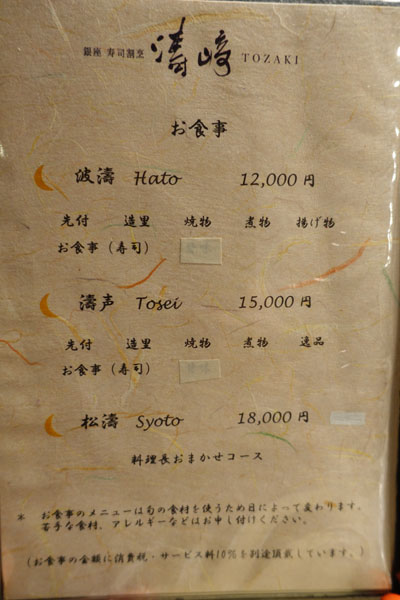 銀座 寿司割烹 濤﨑 TOZAKI
お食事
波濤 Hato 12,000円
先付 造里 焼物 煮物 揚げ物
お食事（寿司）
濤声 Tosei 15,000円
先付 造里 焼物 煮物 逸品
お食事（寿司）
松濤 Syoto 18,000円
料理長おまかせコース
* お食事のメニューは旬の食材を使うため日によって変わります。
苦手な食材、アレルギーなどはお申し付けください。
（お食事の金額に消費税・サービス料10%を別途頂戴しています。）